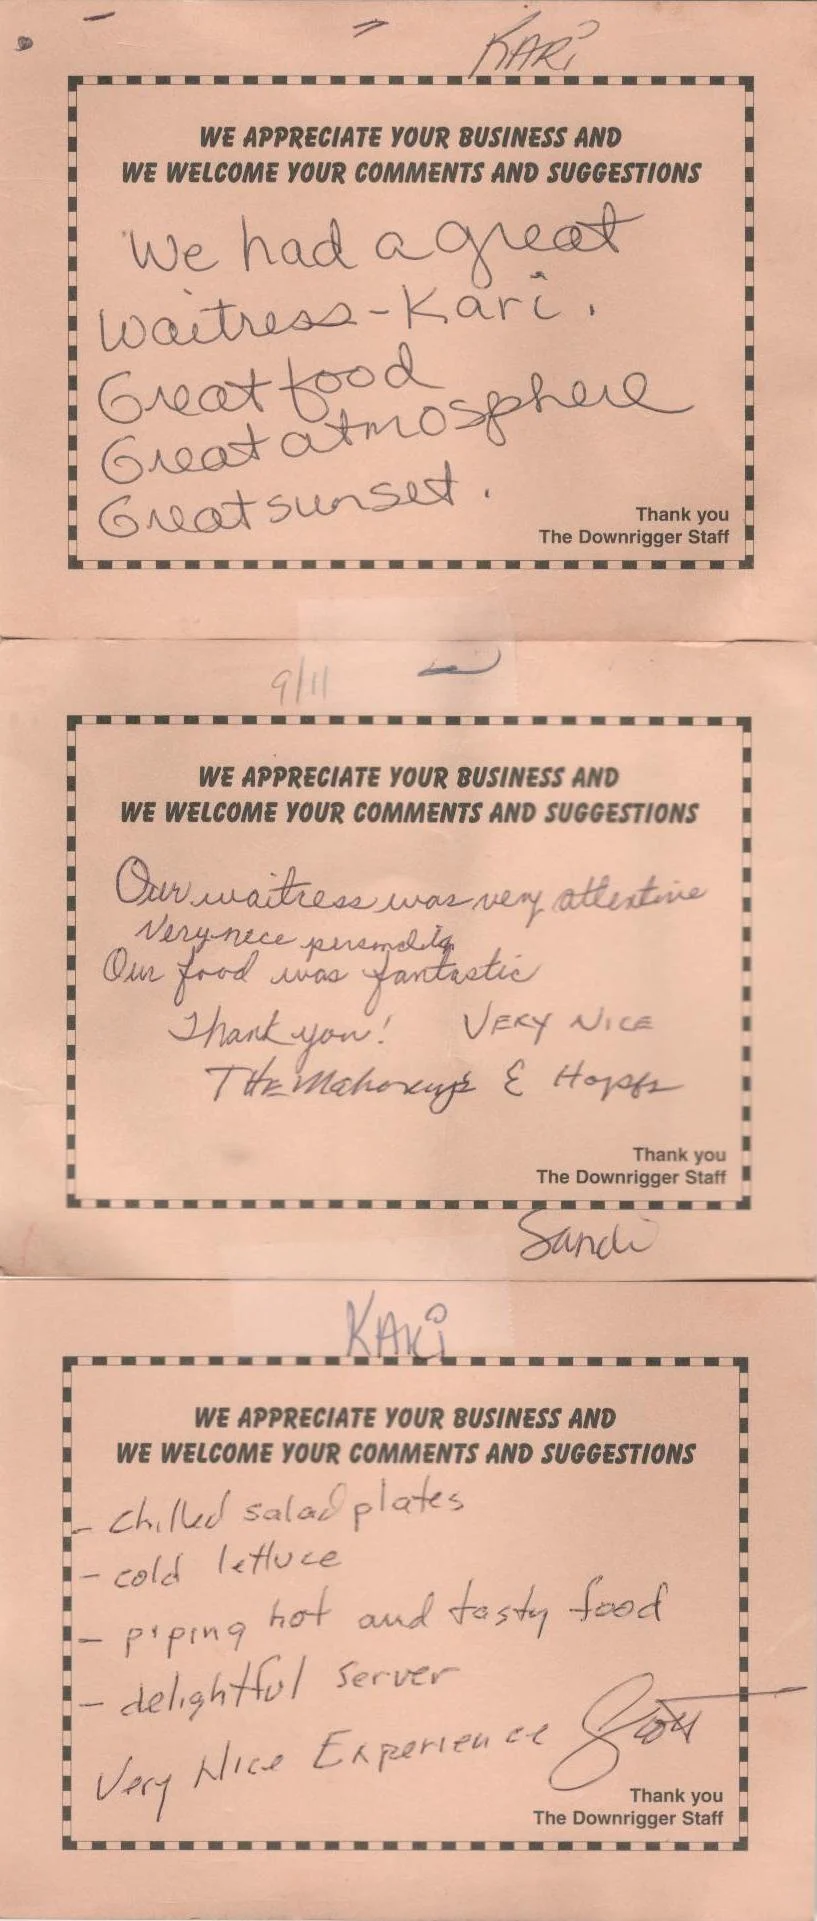 KARi
WE APPRECIATE YOUR BUSINESS AND
WE WELCOME YOUR COMMENTS AND SUGGESTIONS
We had a great
Waitress - Kari.
Great food
Great atmosphere
Great sunset.
Thank you
The Downrigger Staff
9/11
WE APPRECIATE YOUR BUSINESS AND
WE WELCOME YOUR COMMENTS AND SUGGESTIONS
Our waitress was very attentive
Very nece personality
Our food was fantastic
Thank you! VERY NICE
THE Mahoney's &
Thank you
The Downrigger Staff
Sandi
KARi
WE APPRECIATE YOUR BUSINESS AND
WE WELCOME YOUR COMMENTS AND SUGGESTIONS
- chilled salad plates
- cold lettuce
- piping hot and tasty food
- delightful server
Very Nice Experience
Thank you
The Downrigger Staff